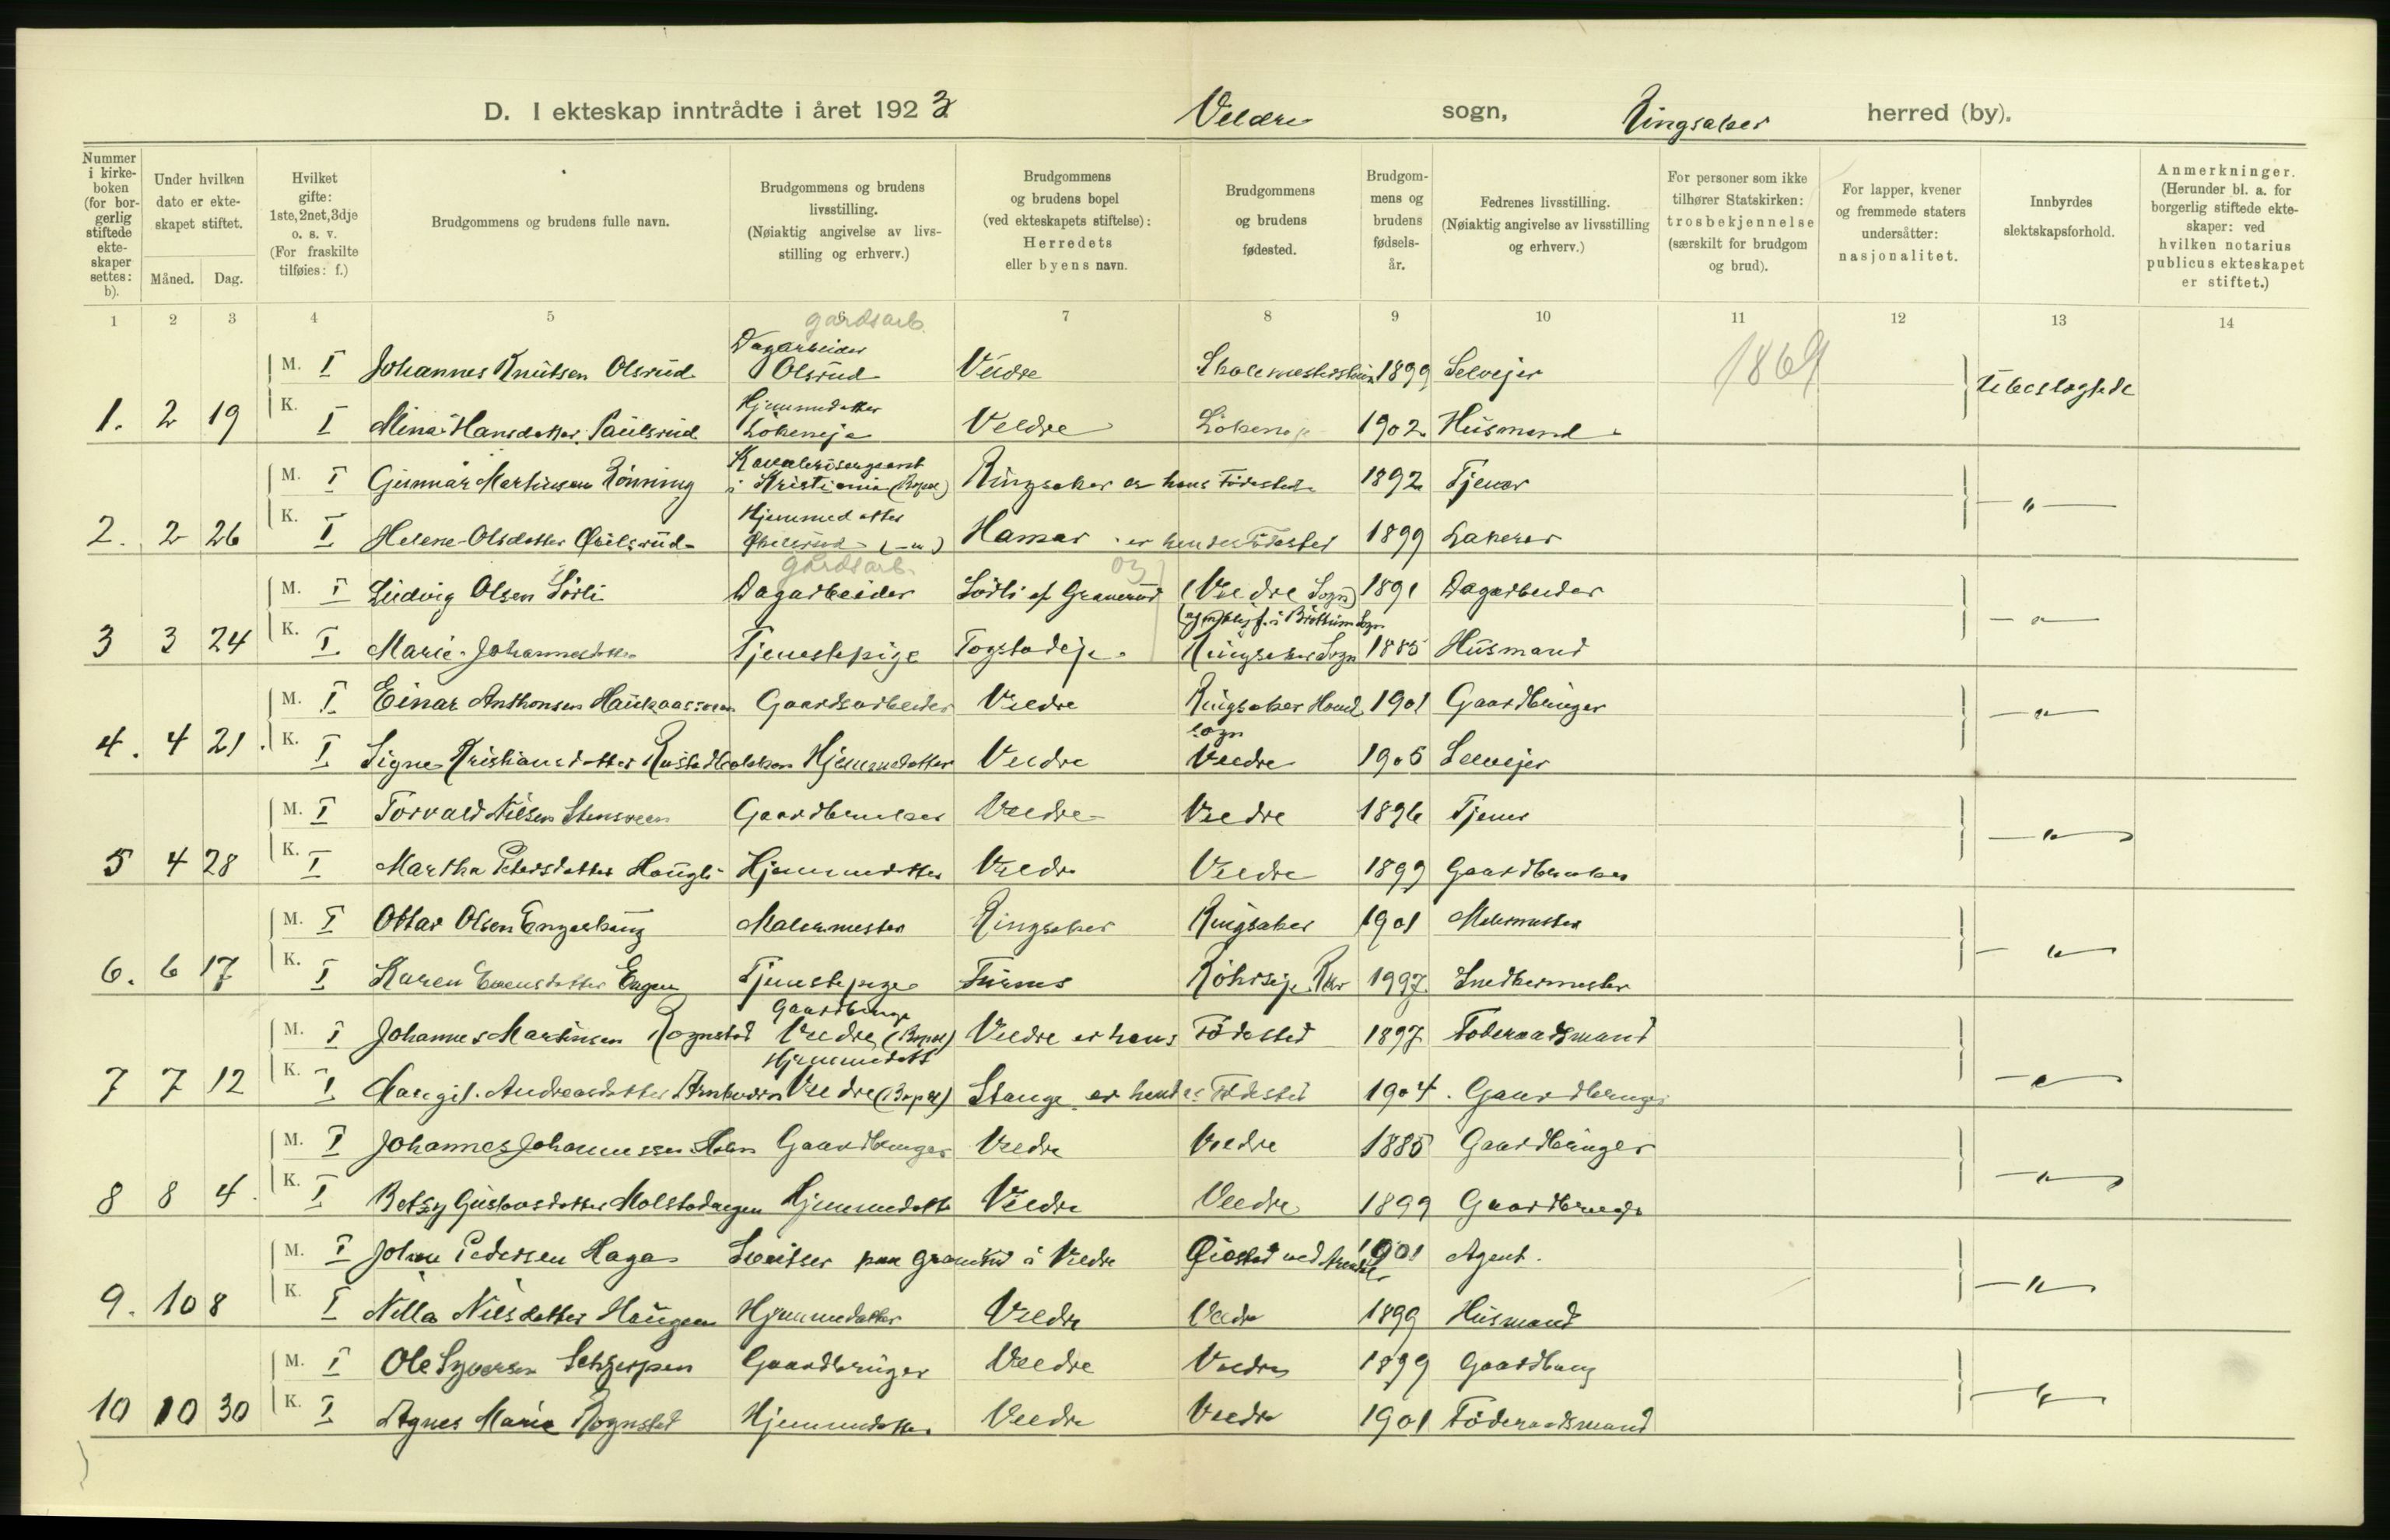 D. I ekteskap inntrådte i året 1923 Veldre sogn, Ringsaker herred (by).
Nummer i kirke-boken (for bor-gerlig stiftede ekte-skaper settes: b).
Under hvilken dato er ekte-skapet stiftet.
Måned. Dag.
Hvilket gifte: 1ste, 2net, 3dje o. s. v. (For fraskilte tilføies: f.)
Brudgommens og brudens fulle navn.
Brudgommens og brudens livsstilling. (Nøiaktig angivelse av livs-stilling og erhverv.)
Brudgommens og brudens bopel (ved ekteskapets stiftelse): Herredets eller byens navn.
Brudgommens og brudens fødested.
Brudgom-mens og brudens fødsels-år.
Fedrenes livsstilling. (Nøiaktig angivelse av livsstilling og erhverv.)
For personer som ikke tilhører Statskirken: trosbekjennelse (særskilt for brudgom og brud).
For lapper, kvener og fremmede staters undersåtter: nasjonalitet.
Innbyrdes slektskapsforhold.
Anmerkninger. (Herunder bl. a. for borgerlig stiftede ekte-skaper: ved hvilken notarius publicus ekteskapet er stiftet.)
1 2 3 4 5 6 7 8 9 10 11 12 13 14
gardsarb.
Dagarbeider
M. I Johannes Knutsen Olsrud Olsrud Veldre 1899 Selvejer 1869 Ubeslægtede
Hjemmedatter
1. 2 19 K. I Mina Hansdatter Paulsrud Løkeneje Veldre Løkeneje 1902 Husmand
Kavalerisergeant
M. I Gunnar Martinsen Rönning i Kristiania (Bopæl) Ringsaker er hans Fødested 1892 Tjener
Hjemmedatter
2. 2 26 K. I Helene Olsdatter (—"—) Hamar er hendes Fødested 1899 —"—
gårdsarb.
M. I Ludvig Olsen Sörli Dagarbeider Sörli (Veldre Sogn) 1891 Dagarbeider
3 3 24 K. I Marie Johannesdatter Tjenestepige Ringsaker Sogn 1885 Husmand —"—
M. I Einar Anthonsen Gaardsarbeider Veldre Ringsaker Hoved 1901 Gaardbruger
sogn
4. 4 21. K. I Signe Kristiansdatter Hjemmedatter Veldre Veldre 1905 Selvejer —"—
M. I Torvald Nilsen Stensveen Gaardbruker Veldre Veldre 1896 Tjener
5 4 28 K. I Martha Petersdatter Haugli Hjemmedatter Veldre Veldre 1899 Gaardbruker —"—
M. I Ottar Olsen Malermester Ringsaker Ringsaker 1901 Malermester
6. 6 17 K. I Karen Evensdatter Engen Tjenestepige Furnes 1997 Snedkermester —"—
Gaardbruger
M. I Johannes Martinsen Rognstad Veldre (Bopæl) Veldre er hans Fødested 1897 Føderaadsmand
Hjemmedatt
7 7 12 K. I Margit Andreasdatter Veldre (Bopæl) Stange er hendes Fødested 1904. Gaardbruger —"—
M. I Johannes Johannessen Gaardbruger Veldre Veldre 1885 Gaardbruger
8 8 4. K. I Betzy Gustavsdatter Hjemmedatter Veldre Veldre 1899 Gaardbruger —"—
M. I Johan Pedersen Haga i Veldre 1901 Agent.
9. 10 8 K. I Nilla Nilsdatter Haugen Hjemmedatter Veldre Veldre 1899 Husmand —"—
M. I Ole Syversen Gaardbruger Veldre Veldre 1899 Gaardbrug
10 10 30 K. I Agnes Marie Rognstad Hjemmedatter Veldre Veldre 1901 Föderaadsmand —"—